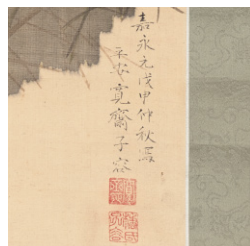 嘉永元戊申仲秋寫
平安寛齋子容